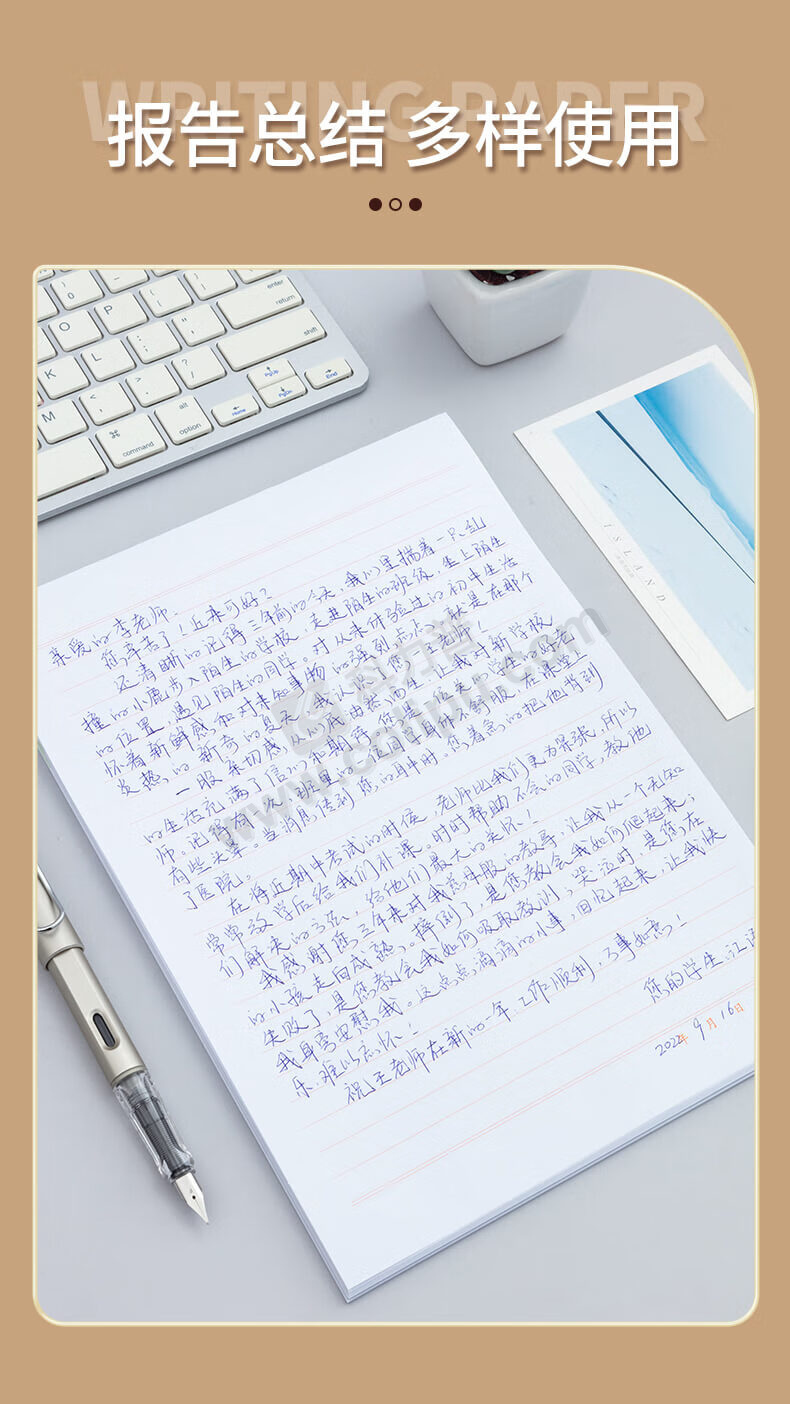 WRITING PAPER
报告总结 多样使用
enter
return
shift
O
P
K
L
M
alt
option
command
PgUp
PgDn
Home
End
ISLAND
亲爱的李老师:
您辛苦了!近来可好?
还清晰的记得三年前的今天,我们里揣着一只乱
撞的小鹿步入陌生的学校,走进陌生的班级,坐上陌生
的位置,遇见陌生的同学。对从未体验过的初中生活
怀着新鲜感和对未知事物的强烈 就是在那
炎热的 新奇的夏天,我认识了您,王老师!
一股亲切感从心底由然而生,让我对新学校
的生活充满了信心和期待。您
师,记得有一次,班里的一位同学身体不舒服,在课堂上
有些失常。当消息传到您的耳中时。您着急的把他背到
了医院。
在将近期中考试的时候,老师比我们更为紧张,所以
常常放学后给我们补课。时时帮助不会的同学,教他
们解决的方法,给他们最大的关怀!
我感谢您三年来对我慈母般的教导,让我从一个无知
的小孩走向成熟。摔倒了,是您教会我如何爬起来;
失败了,是您教会我如何吸取教训;哭泣时,是您在
我身旁安慰我。这点点滴滴的小事,回忆起来,让我快
乐,难以忘怀!
祝王老师在新的一年,工作顺利,万事如意!
您的学生:江
2022年 9月16日
科力普
www.colipu.com